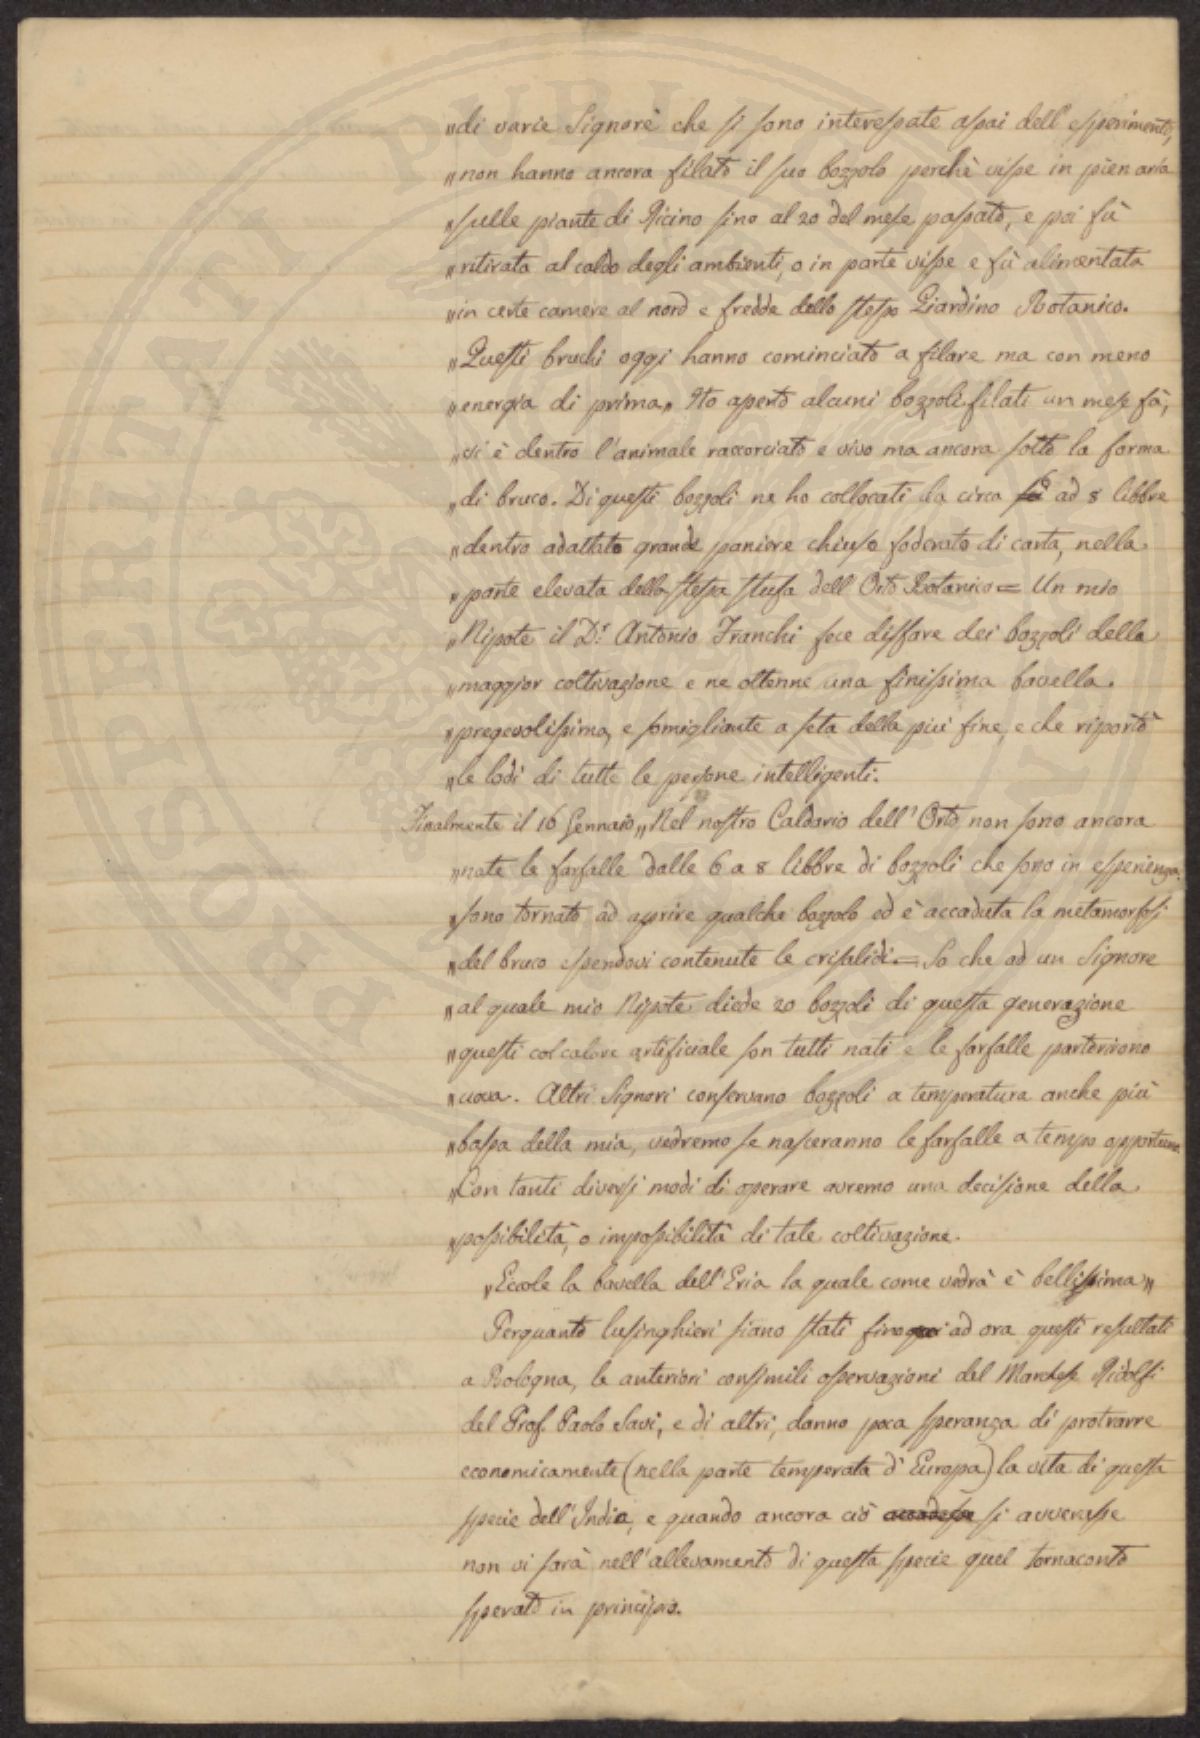 „di varie Signore che si sono interessate assai dell'esperimento,
„non hanno ancora filato il suo bozzolo perchè visse in pien aria
„sulle piante di Ricino sino al 20 del mese passato, e poi fù
„ritirata al caldo degli ambienti, o in parte visse e fù alimentata
„in certe camere al nord e fredde dello stesso Giardino Botanico.
„Questi bruchi oggi hanno cominciato a filare ma con meno
„energia di prima„ Ho aperto alcuni bozzoli filati un mese fà,
„vi è dentro l'animale raccorciato e vivo ma ancora sotto la forma
„di bruco. Di questi bozzoli ne ho collocati da circa 6 ad 8 libbre
„dentro adattato grande paniere chiuso foderato di carta, nella
„parte elevata della stessa stufa dell'Orto Botanico = Un mio
„Nipote il Dr. Antonio Franchi fece disfare dei bozzoli della
„maggior coltivazione e ne ottenne una finissima bavella.
„pregevolissima, e somigliante a seta della più fine, e che riportò
„le lodi di tutte le persone intelligenti.
Finalmente il 16 Gennaio „Nel nostro Caldario dell'Orto non sono ancora
„nate le farfalle dalle 6 a 8 libbre di bozzoli che sono in esperienza.
„sono tornato ad aprire qualche bozzolo ed è accaduta la metamorfosi
„del bruco essendovi contenute le crisalidi = So che ad un Signore
„al quale mio Nipote diede 20 bozzoli di questa generazione
„questi col calore artificiale son tutti nati e le farfalle partorirono
„uova. Altri Signori conservano bozzoli a temperatura anche più
„bassa della mia, vedremo se nasceranno le farfalle a tempo opportuno.
„Con tanti diversi modi di operare avremo una decisione della
„possibilità, o impossibilità di tale coltivazione.
„Eccole la bavella dell'Eria la quale come vedrà è bellissima„
Perquanto lusinghieri siano stati fino ad ora questi resultati
a Bologna, le anteriori consimili osservazioni del Marchese Ridolfi
del Prof. Paolo Savi, e di altri, danno poca speranza di protrarre
economicamente (nella parte temperata d'Europa) la vita di questa
specie dell'India, e quando ancora ciò accadesse si avverasse
non vi sarà nell'allevamento di questa specie quel tornaconto
sperato in principio.